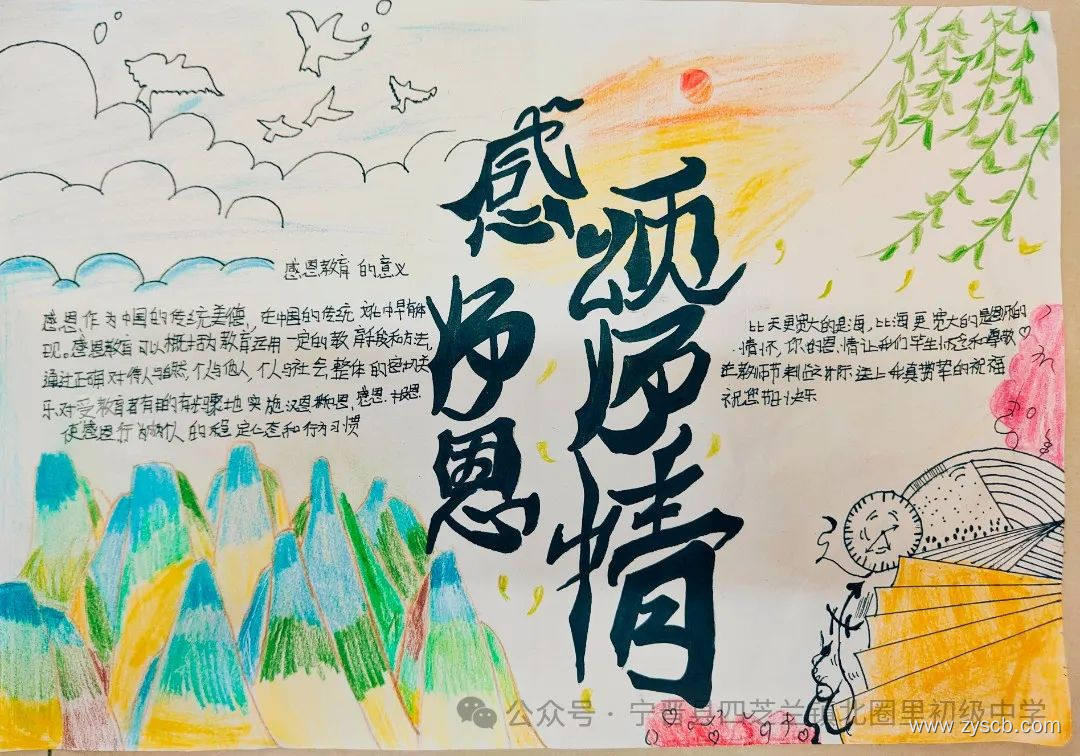 感师恩
颂师情
感恩教育的意义
感恩,作为中国的传统美德,在中国的传统文化中早有体
现。感恩教育可以概括为教育运用一定的教育手段和方法,
通过正确对待人与自然,个人与他人,个人与社会整体的
对受教育者有目的有步骤地实施识恩
使感恩行为成人的稳定心态和行为习惯
比天更宽大的是海,比海更宽大的是恩师的
情怀,你的恩情让我们毕生怀念和尊敬
在教师节到这时际送上我真挚的祝福
祝您节日快乐
公众号·宁晋县四芝兰镇北圈里初级中学
www.zyscb.com